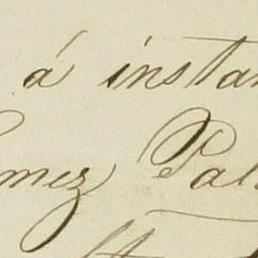 á instan
mez Pal